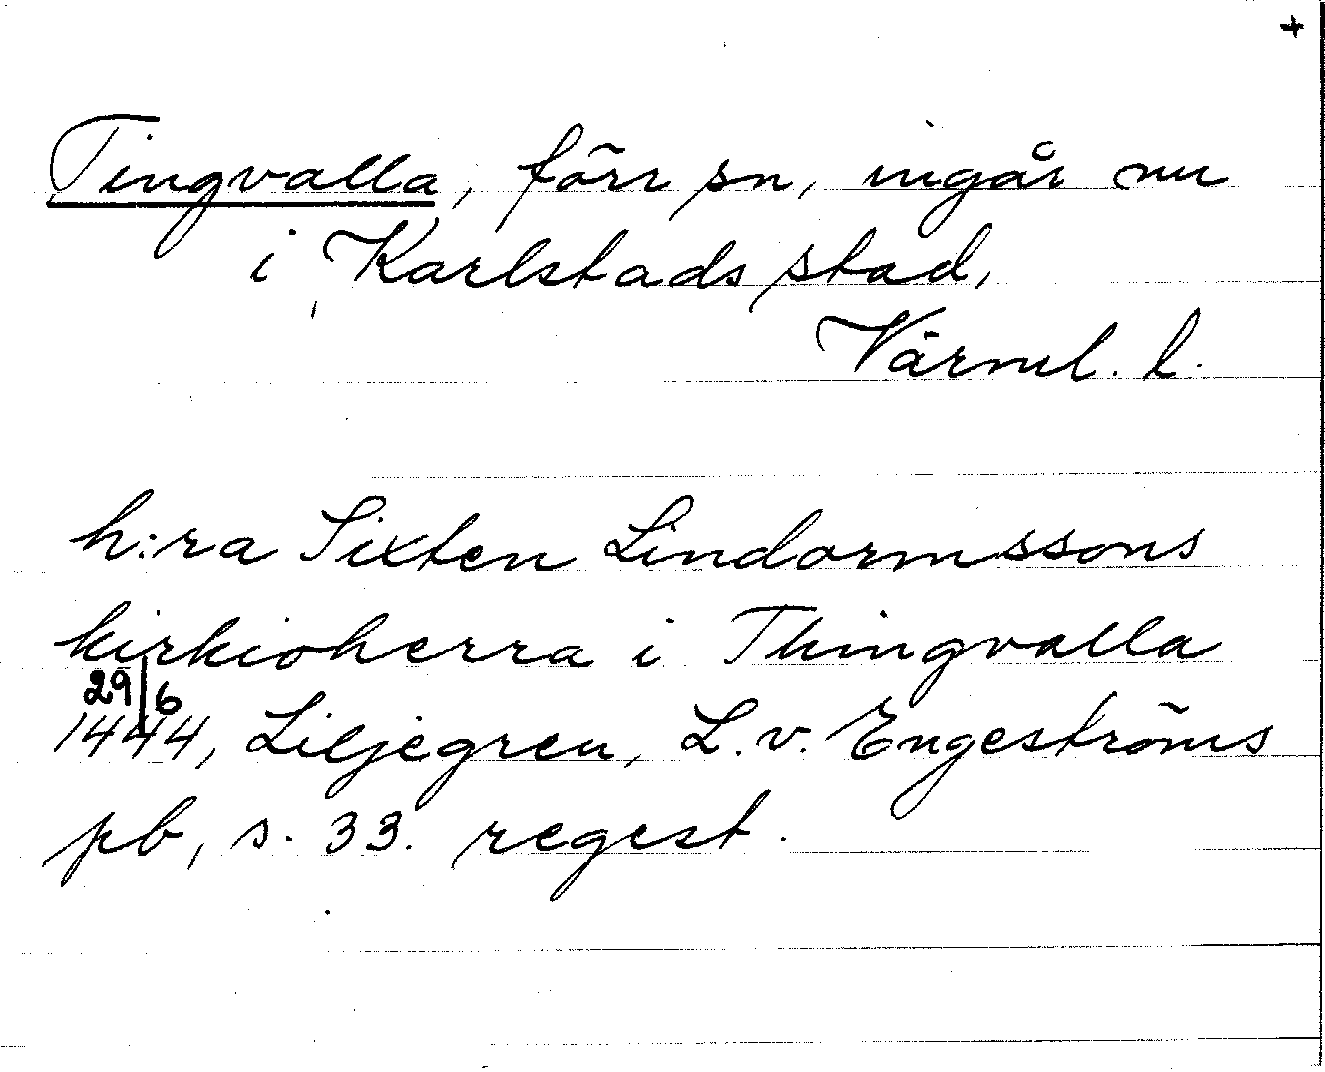 +
Tingvalla, förr sn, ingår nu
i Karlstads stad,
Värml. l.
h:ra Sixten Lindormssons
kirkioherra i Thingvalla
29/6
1444, Liljegren, L. v. Engeströms
pb, s. 33. regest.